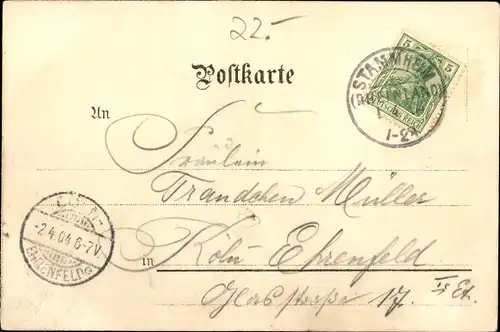 22.
Postkarte
STAMMHEIM
5 5
1-2
An
Fräulein
Tränchen Müller
-2.4.04 6-7V
EHRENFELD
in Köln Ehrenfeld
Glasstraße 17. II Et.